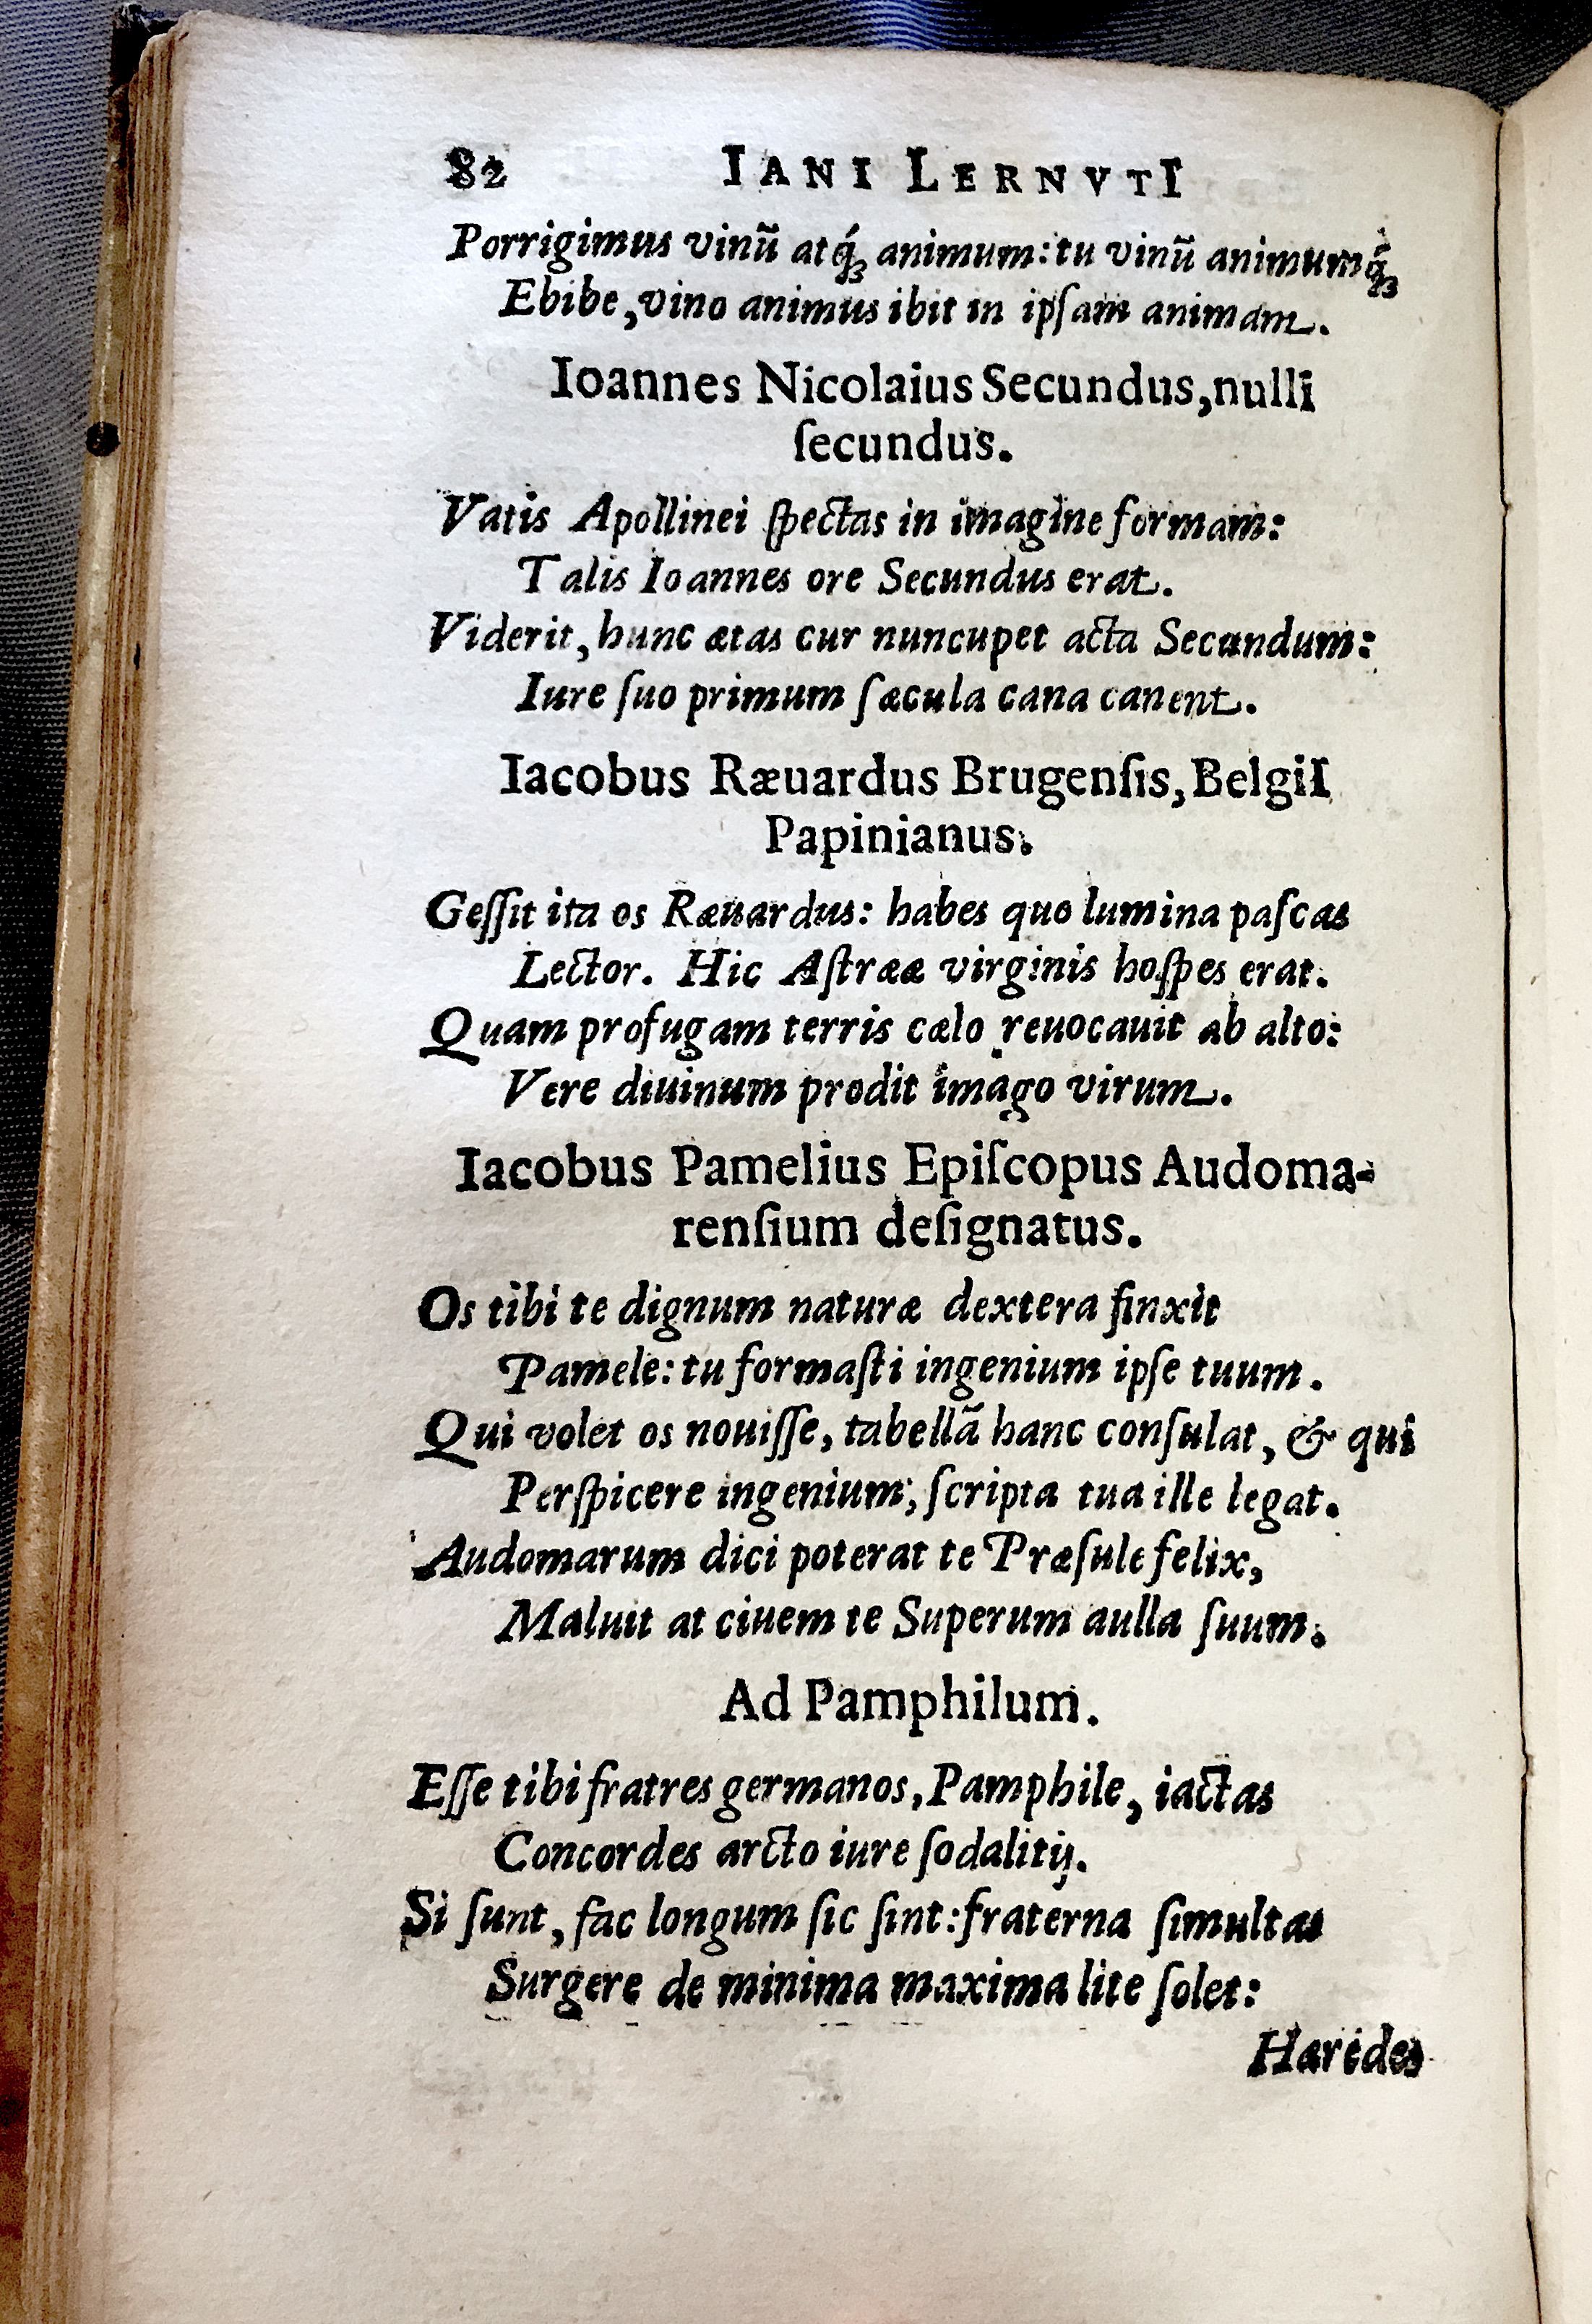 82 IANI LERNVTI
Porrigimus vinũ atq́ꝫ animum: tu vinũ animumq́ꝫ
Ebibe, vino animus ibit in ipſam animam.
Ioannes Nicolaius Secundus, nulli
ſecundus.
Vatis Apollinei ſpectas in imagine formam:
Talis Ioannes ore Secundus erat.
Viderit, hunc ætas cur nuncupet acta Secundum:
Iure ſuo primum ſæcula cana canent.
Iacobus Ræuardus Brugenſis, BelgiI
Papinianus.
Geſſit ita os Ræuardus: habes quo lumina paſcas
Lector. Hic Aſtrææ virginis hoſpes erat.
Quam profugam terris cælo reuocauit ab alto:
Vere diuinum prodit imago virum.
Iacobus Pamelius Epiſcopus Audoma-
renſium deſignatus.
Os tibi te dignum naturæ dextera finxit
Pamele: tu formaſti ingenium ipſe tuum.
Qui volet os nouiſſe, tabellã hanc conſulat, & qui
Perſpicere ingenium, ſcripta tua ille legat.
Audomarum dici poterat te Præſule felix,
Maluit at ciuem te Superum aulla ſuum.
Ad Pamphilum.
Eſſe tibi fratres germanos, Pamphile, iactas
Concordes arcto iure ſodalitij.
Si ſunt, fac longum ſic ſint: fraterna ſimultas
Surgere de minima maxima lite ſolet:
Haredes